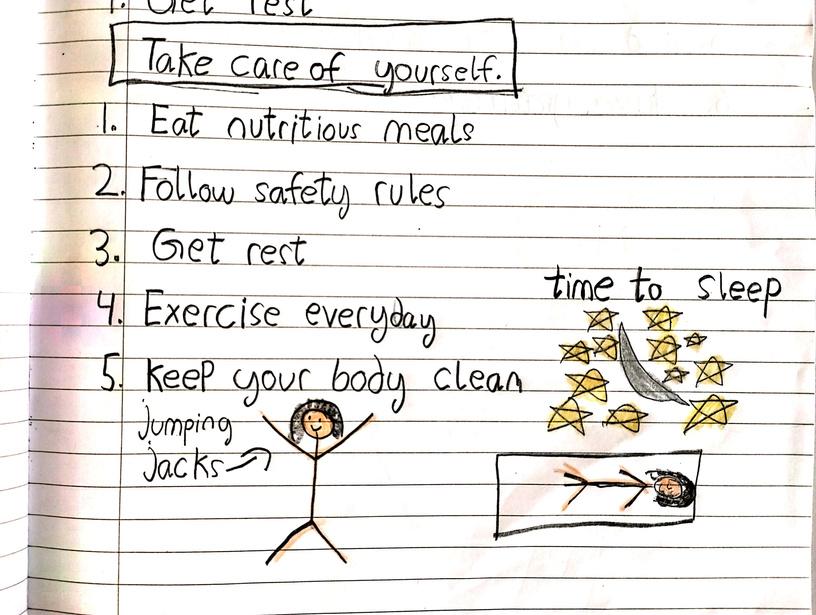 1. Get rest
Take care of yourself.
1. Eat nutritious meals
2. Follow safety rules
3. Get rest
4. Exercise everyday
5. keep your body clean
time to sleep
jumping
Jacks